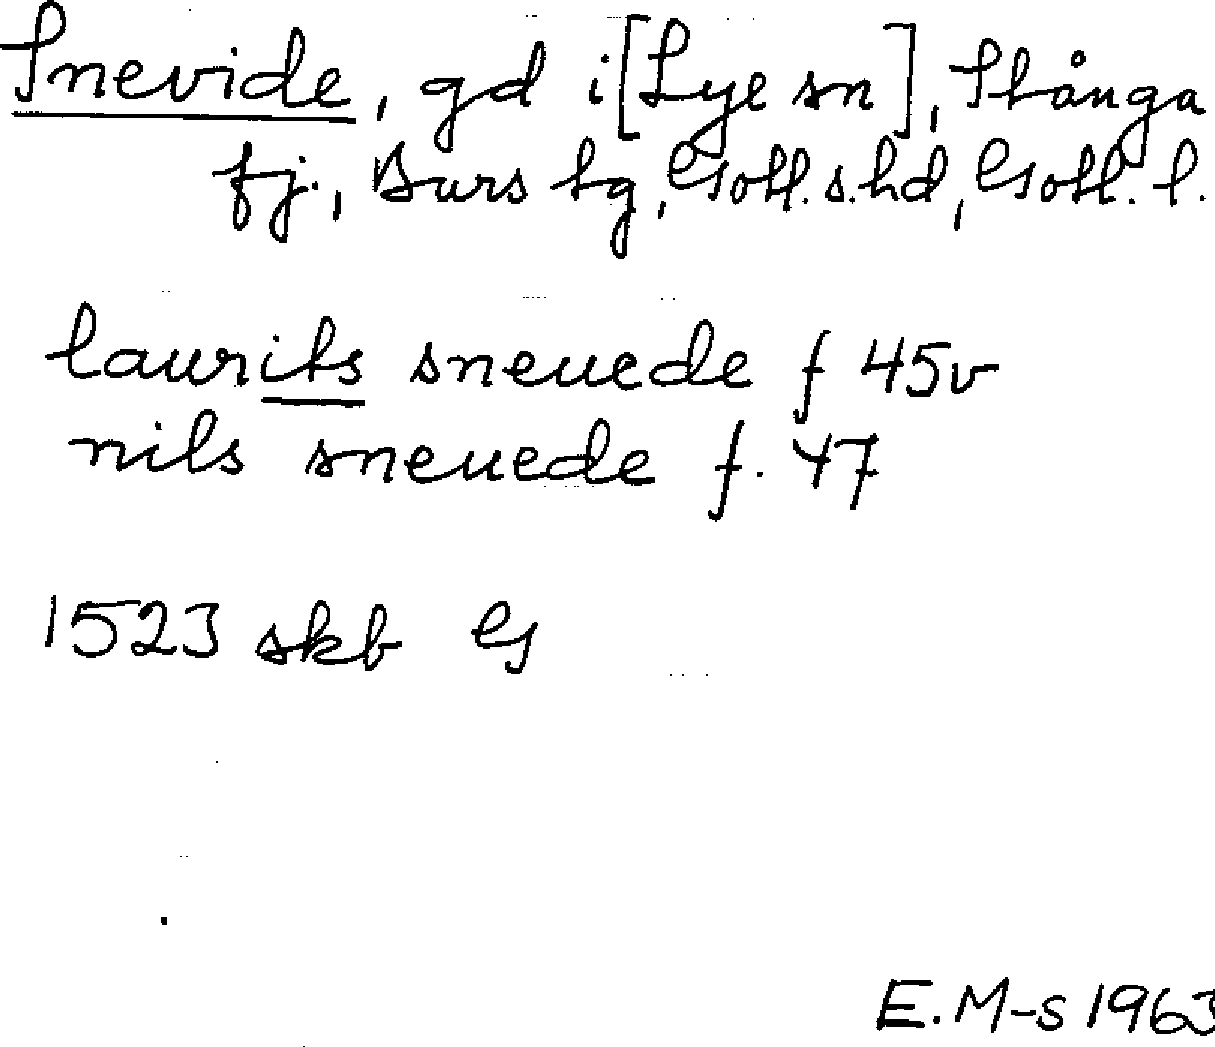 Snevide, gd i [Lye sn], Stånga
fj., Burs tg, Gotl. s. hd, Gotl. l.
laurits sneuede f 45v
nils sneuede f. 47
1523 skb G
E. M-s 1963